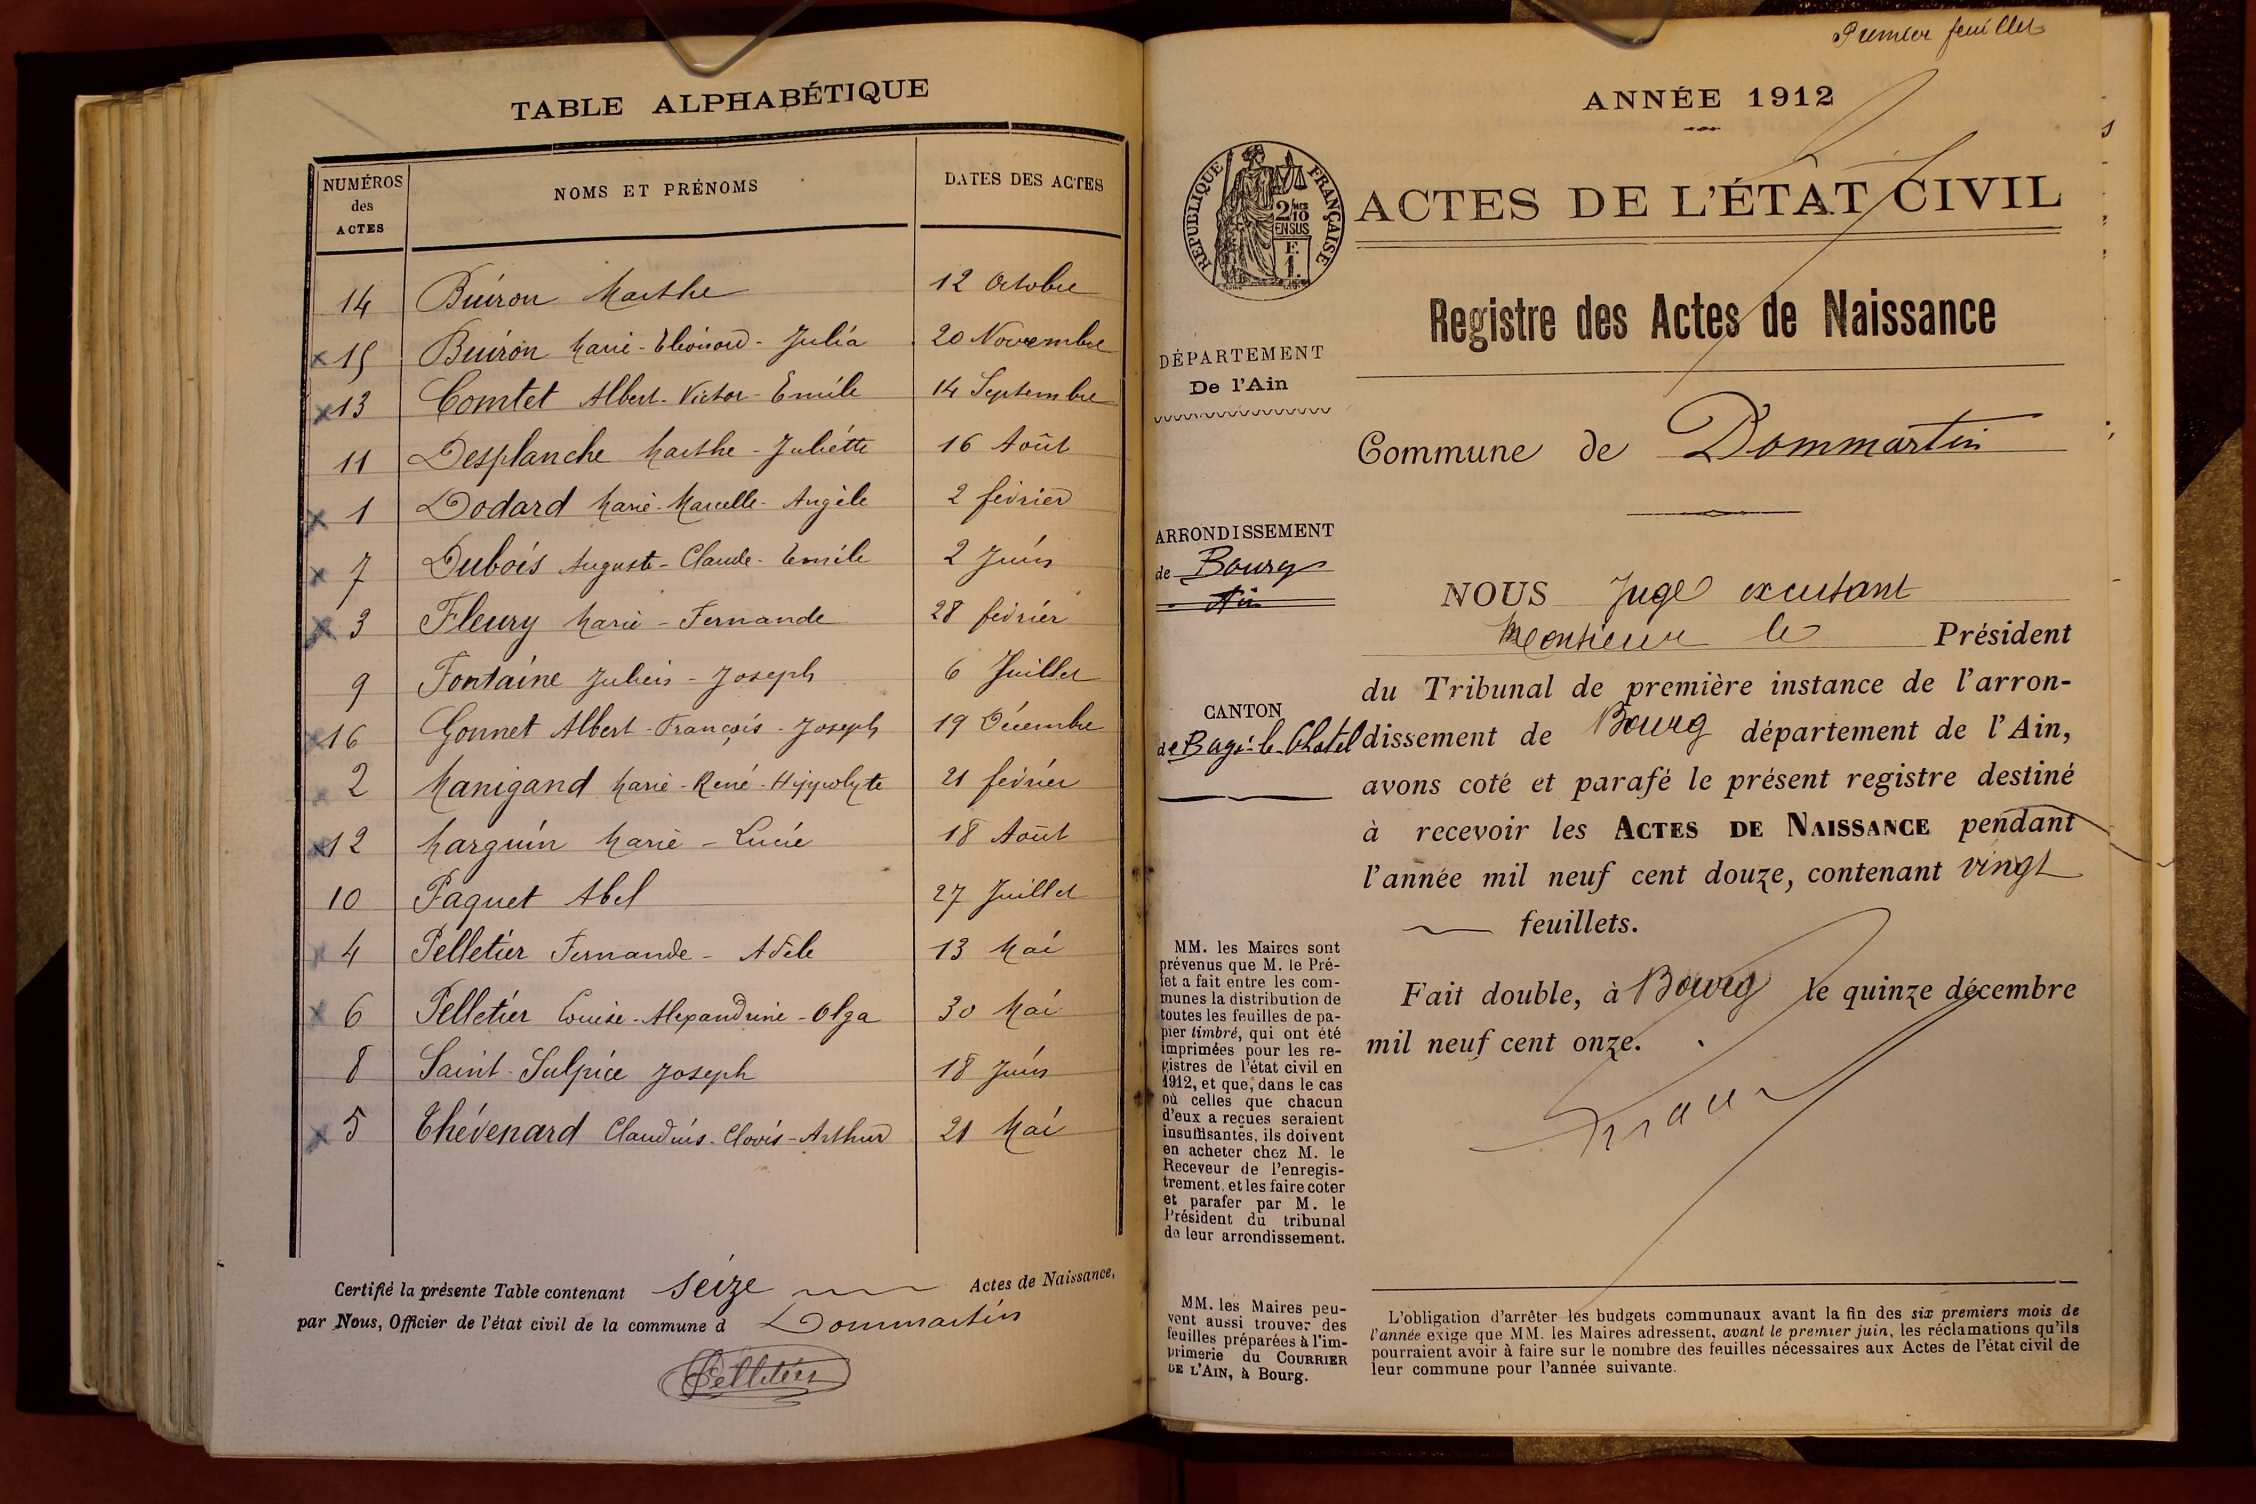 TABLE ALPHABÉTIQUE
NUMÉROS des ACTES NOMS ET PRÉNOMS DATES DES ACTES
14 Buiron Marthe 12 Octobre
15 Buiron Marie-Eléonore-Julia 20 Novembre
13 Comtet Albert-Victor-Emile 14 Septembre
11 Desplanche Marthe-Juliette 16 Août
1 Dodard Marie-Marcelle-Angèle 2 février
7 Dubois Auguste-Claude-Emile 2 Juin
3 Fleury Marie-Fernande 28 février
9 Fontaine Julien-Joseph 6 Juillet
16 Gonnet Albert-François-Joseph 19 Décembre
2 Manigand Marie-René-Hyppolyte 21 février
12 Marguin Marie-Lucie 18 Août
10 Paquet Abel 27 Juillet
4 Pelletier Fernande-Adèle 13 Mai
6 Pelletier Louise-Alexandrine-Olga 30 Mai
8 Saint-Sulpice Joseph 18 Juin
5 Thévenard Claudius-Clovis-Arthur 21 Mai
Certifié la présente Table contenant seize Actes de Naissance,
par Nous, Officier de l'état civil de la commune d Dommartin
Pelletier
Premier feuillet
ANNÉE 1912
RÉPUBLIQUE FRANÇAISE
2/10 EN SUS
F. 1.
ACTES DE L'ÉTAT CIVIL
Registre des Actes de Naissance
DÉPARTEMENT
De l'Ain
Commune de Dommartin
ARRONDISSEMENT
de Bourg
Ain
CANTON
de Bagé-le-Chatel
NOUS Juge excusant
Monsieur le Président
du Tribunal de première instance de l'arron-
dissement de Bourg département de l'Ain,
avons coté et parafé le présent registre destiné
à recevoir les ACTES DE NAISSANCE pendant
l'année mil neuf cent douze, contenant vingt
feuillets.
Fait double, à Bourg le quinze décembre
mil neuf cent onze.
MM. les Maires sont
prévenus que M. le Pré-
fet a fait entre les com-
munes la distribution de
toutes les feuilles de pa-
pier timbré, qui ont été
imprimées pour les re-
gistres de l'état civil en
1912, et que, dans le cas
où celles que chacun
d'eux a reçues seraient
insuffisantes, ils doivent
en acheter chez M. le
Receveur de l'enregis-
trement, et les faire coter
et parafer par M. le
Président du tribunal
de leur arrondissement.
MM. les Maires peu-
vent aussi trouver des
feuilles préparées à l'im-
primerie du COURRIER
DE L'AIN, à Bourg.
L'obligation d'arrêter les budgets communaux avant la fin des six premiers mois de
l'année exige que MM. les Maires adressent, avant le premier juin, les réclamations qu'ils
pourraient avoir à faire sur le nombre des feuilles nécessaires aux Actes de l'état civil de
leur commune pour l'année suivante.